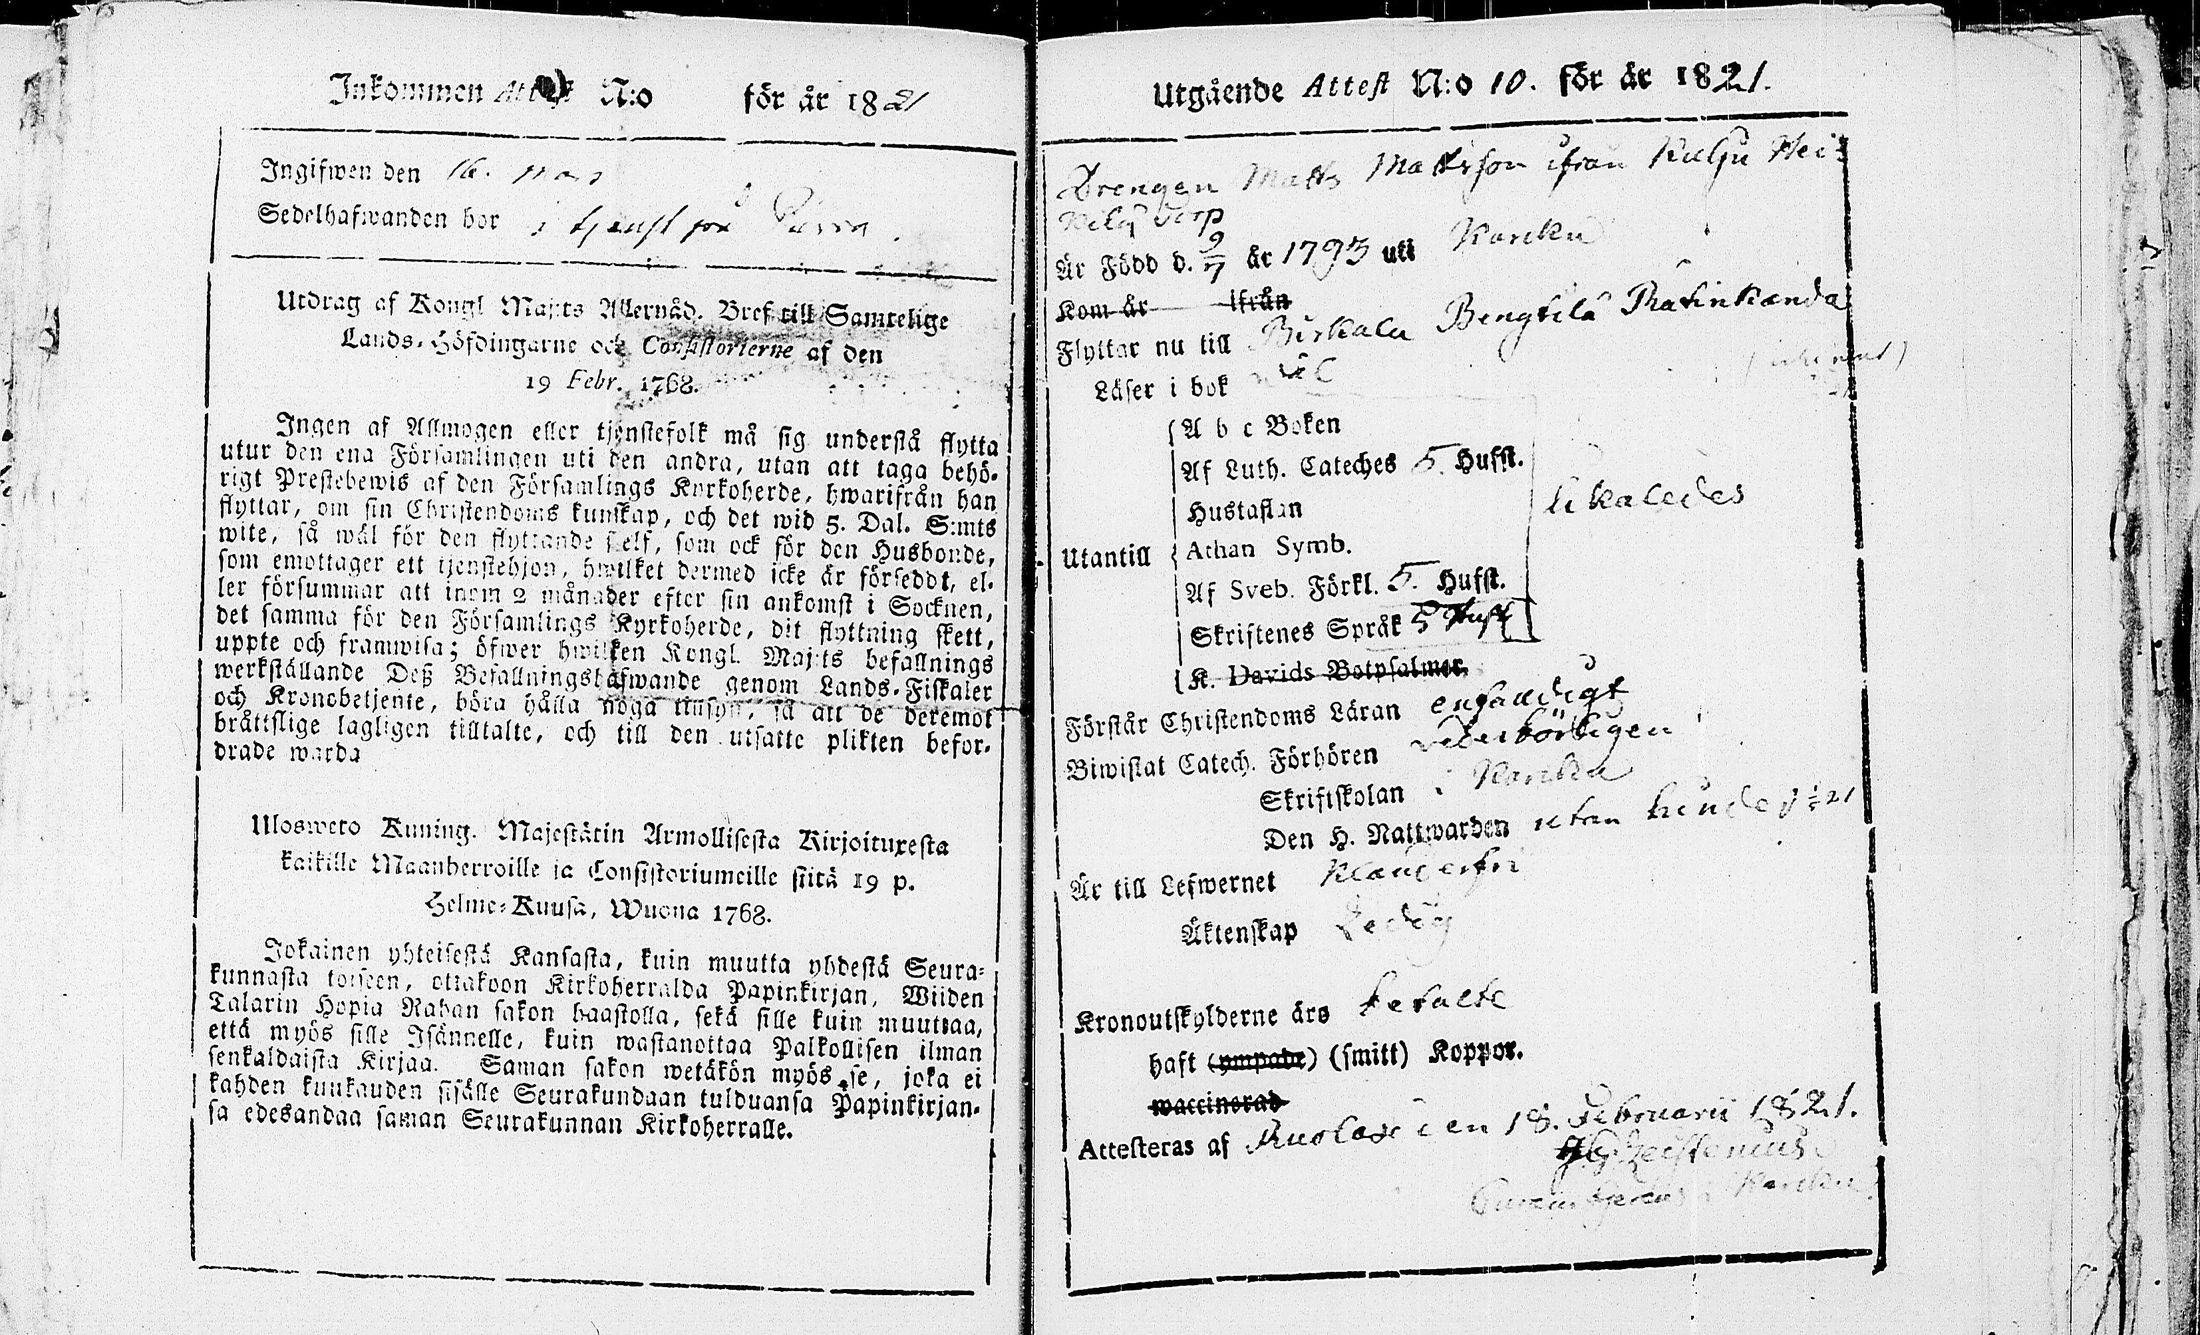 Inkommen Attest N:o för år 1821
Ingifwen den 16. Mars
Sedelhafwanden bor i tjenst på
Utdrag af Kongl Maj:ts Allernåd. Bref till Samtelige
Lands-Höfdingarne och Consistorierne af den
19 Febr. 1768.
Ingen af Allmogen eller tjenstefolk må sig understå flytta
utur den ena Församlingen uti den andra, utan att taga behö-
rigt Prestebewis af den Församlings Kyrkoherde, hwarifrån han
flyttar, om sin Christendoms kunskap, och det wid 5. Dal. S:mts
wite, så wäl för den flyttande sjelf, som ock för den Husbonde,
som emottager ett tjenstehjon, hwilket dermed icke är försedt, el-
ler försummar att inom 2 månader efter sin ankomst i Socknen,
det samma för den Församlings Kyrkoherde, dit flyttning skett,
uppte och framwisa; öfwer hwilken Kongl. Maj:ts befallnings
werkställande Deß Befallningshafwande genom Lands-Fiskaler
och Kronobetjente, böra hålla noga tillsyn, så att de deremot
bråttslige lagligen tilltalte, och till den utsatte plikten befor-
drade warda
Ulosweto Kuning. Majestätin Armollisesta Kirjoituxesta
kaikille Maanherroille ja Consistoriumeille siitä 19 p.
Helme-Kuusa, Wuona 1768.
Jokainen yhteisestä Kansasta, kuin muutta yhdestä Seura-
kunnasta toiseen, ottakoon Kirkoherralda Papinkirjan, Wiiden
Talarin Hopia Rahan sakon haastolla, sekä sille kuin muuttaa,
että myös sille Isännelle, kuin wastanottaa Palkollisen ilman
senkaldaista Kirjaa. Saman sakon wetäkön myös se, joka ei
kahden kuukauden sisälle Seurakundaan tulduansa Papinkirjan-
sa edesandaa saman Seurakunnan Kirkoherralle.
Utgående Attest N:o 10. för år 1821.
Drengen Matts Mattsson ifrån Kulju
Är Född d. 9/7 år 1793 uti Karcku
Kom år ifrån
Flyttar nu till Birkala Bengtilä
Läser i bok
A b c Boken
Af Luth. Cateches 5. Hufst.
Hustaflan
likaledes
Utantill Athan Symb.
Af Sveb. Förkl. 5. Hufst.
Skriftenes Språk 5 Hufst
K. Davids Botpsalmer.
Förstår Christendoms Läran enfaldigt
Biwistat Catech. Förhören wederbörligen
Skriftskolan i Karcku
Den H. Nattwarden utan hinder
Är till Lefwernet klanderfri
Äktenskap Ledig
Kronoutskylderne äro betalte
haft (ympade) (smitt) Koppor.
waccinerad
Attesteras af den 18. Februarii 1821.
Karcku